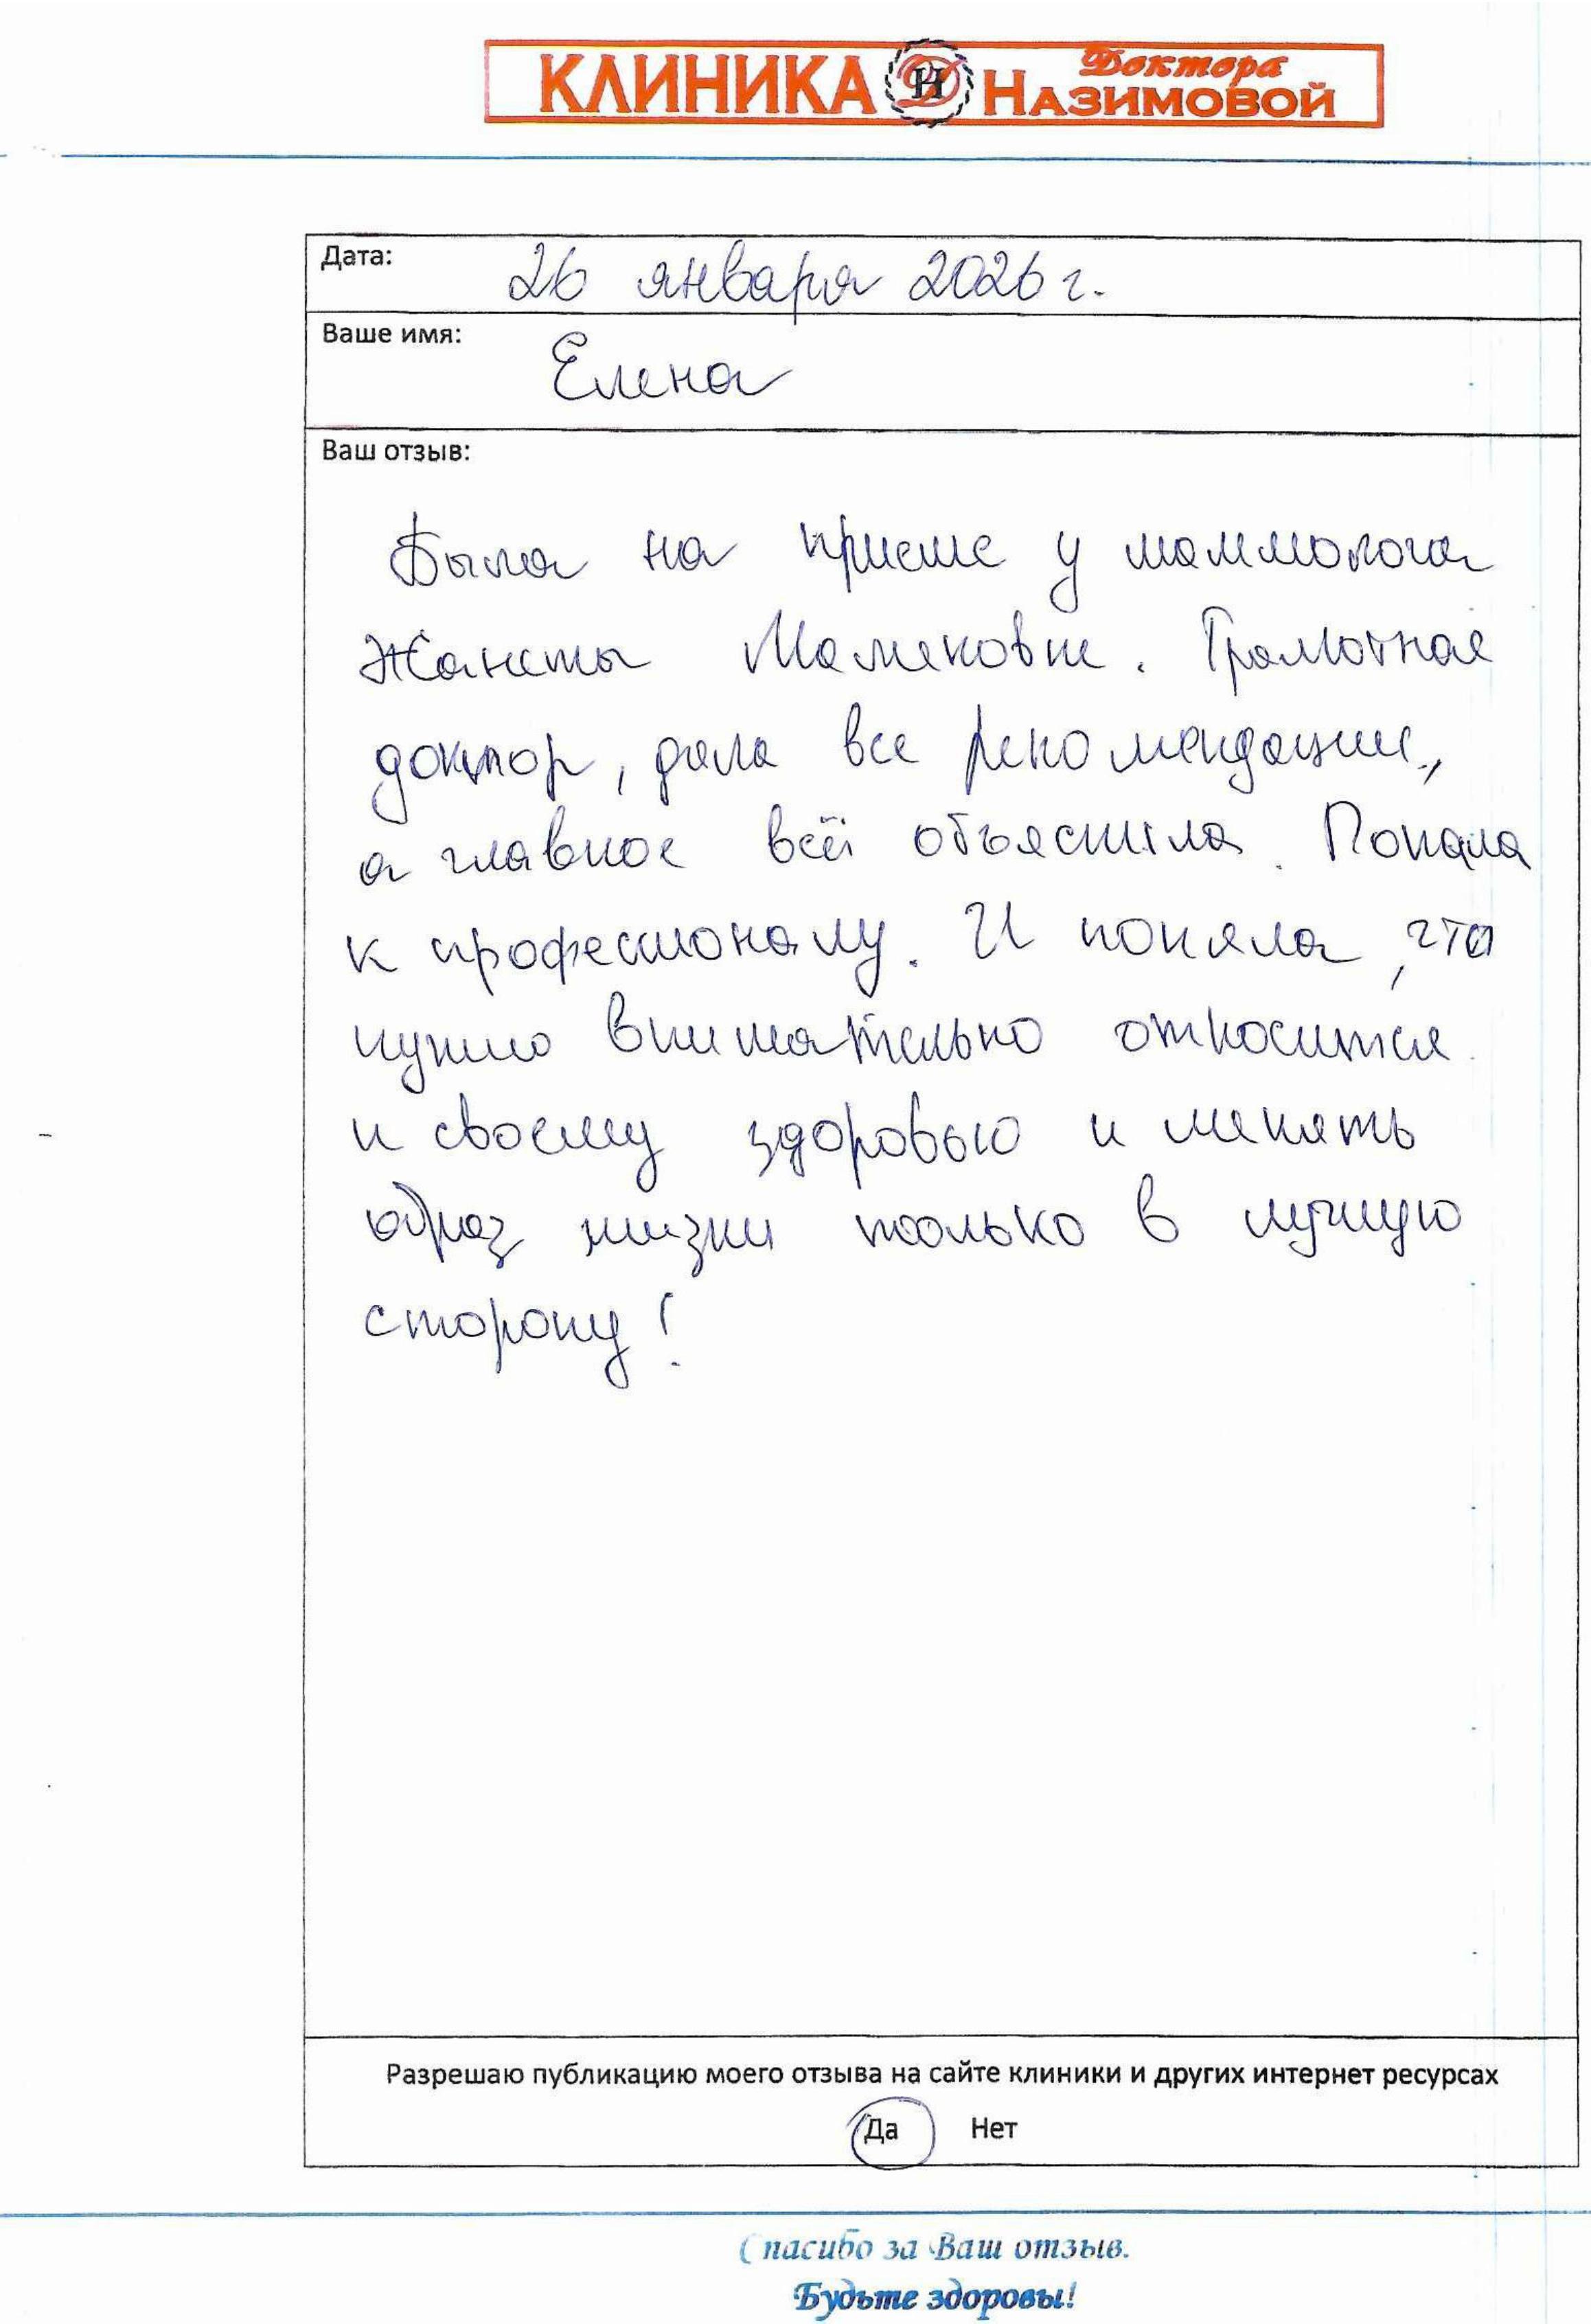 КЛИНИКА ДН Доктора НАЗИМОВОЙ
Дата: 26 января 2026 г.
Ваше имя: Елена
Ваш отзыв:
Была на приеме у маммолога
Жанеты . Грамотная
доктор, дала все рекомендации,
а главное всё объяснила. Попала
к профессионалу. И поняла, что
нужно внимательно относится
к своему здоровью и менять
образ жизни только в лучшую
сторону!
Разрешаю публикацию моего отзыва на сайте клиники и других интернет ресурсах
Да Нет
Спасибо за Ваш отзыв.
Будьте здоровы!